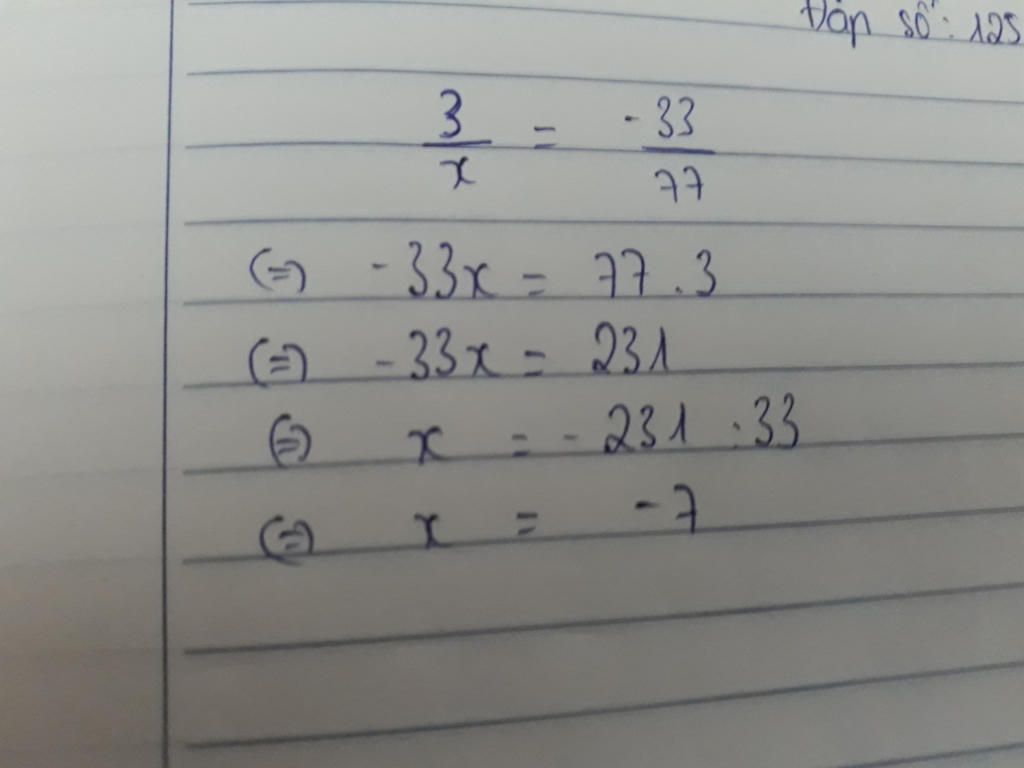 Đáp số: 125
3/x = -33/77
(=) -33x = 77 . 3
(=) -33x = 231
(=) x = - 231 : 33
(=) x = -7